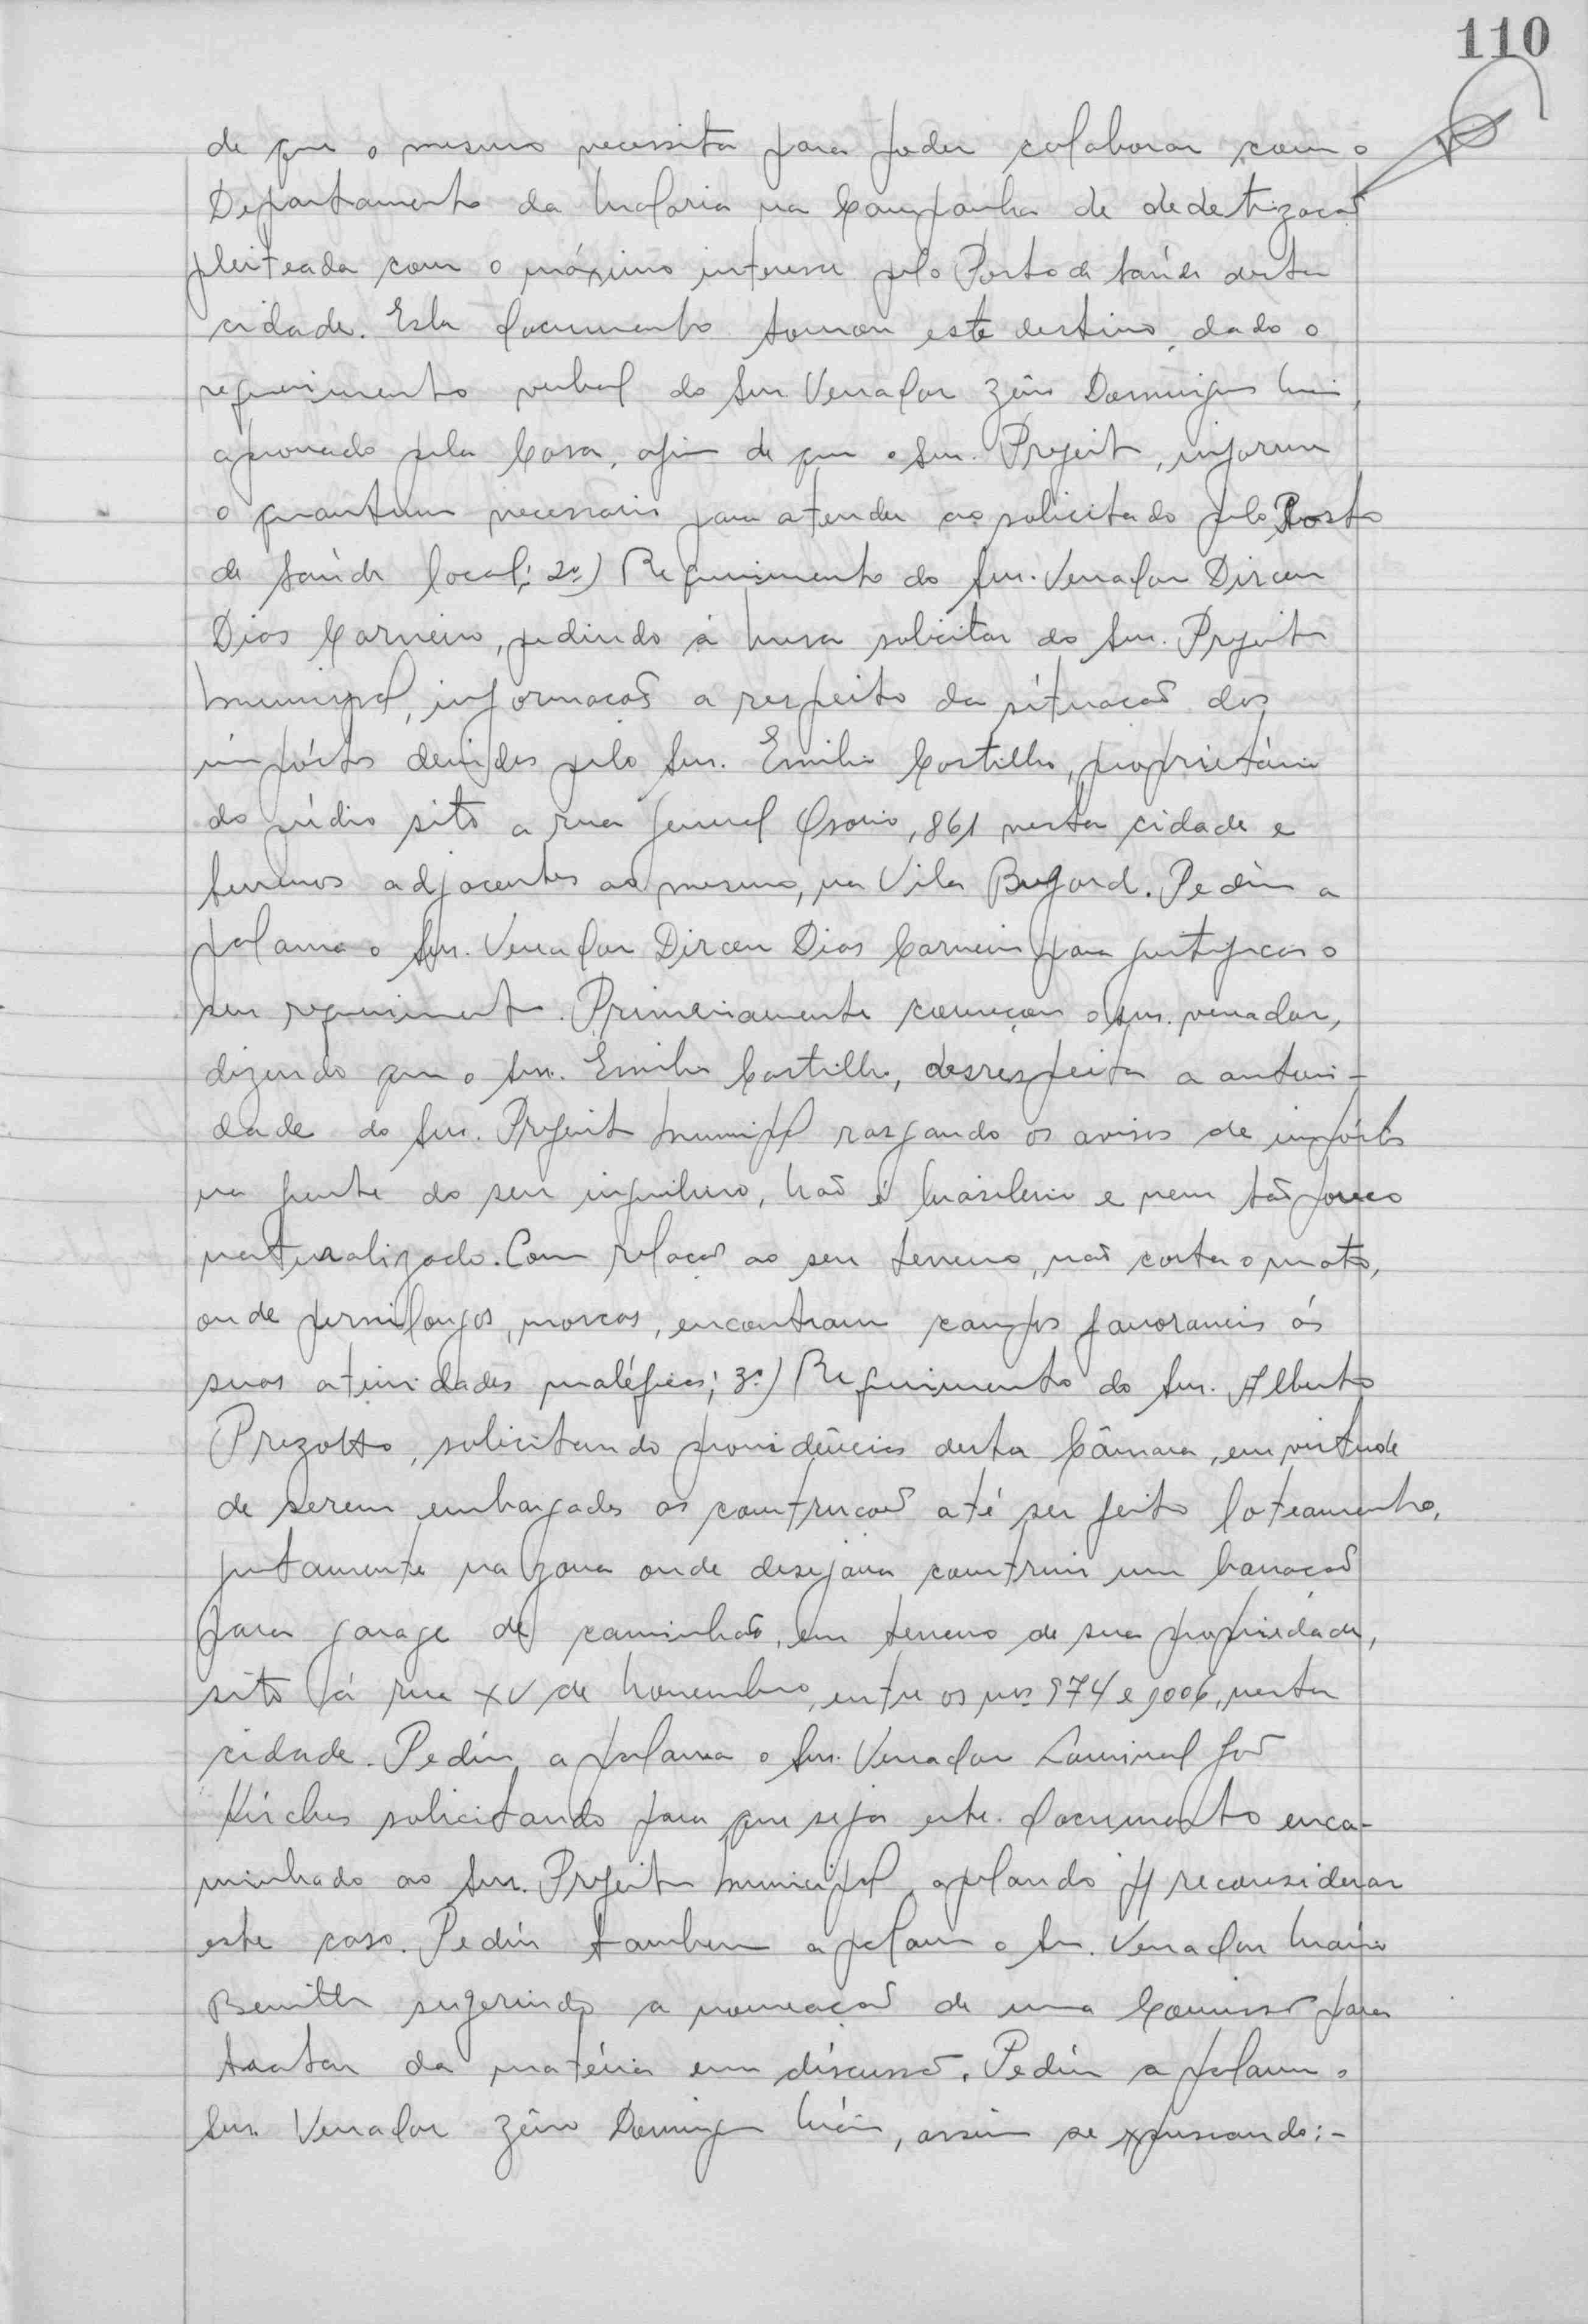 110
de que o mesmo necessita para poder colaborar com o
Departamento da Malaria na Campanha de dedetizacaõ
pleiteada com o máximo interesse pelo Posto de Saúde desta
cidade. Este documento tomou este destino, dado o
requerimento verbal do Snr. Vereador Zêno Domingues
aprovado pela Casa, afim de que o Snr. Prefeito, informe
o quantum necessario para atender ao solicitado pelo Posto
de Saúde local; 2º) Requerimento do Snr. Vereador Dirceu
Dias Carneiro, pedindo à Mesa solicitar do Snr. Prefeito
Municipal, informacaõ a respeito da situacaõ dos
impóstos devidos pelo Snr. Emilio Castilho, proprietário
do prédio sito a rua General Osorio, 861 nesta cidade e
terrenos adjacentes ao mesmo, na Vila Bugard. Pediu a
palavra o Snr. Vereador Dirceu Dias Carneiro para justificar o
seu requerimento. Primeiramente começou o Snr. vereador,
dizendo que o Snr. Emilio Castilho, desrespeita a autori-
dade do Snr. Prefeito Municipal rasgando os avisos de impóstos
na frente do seu inquilino, Naõ é brasileiro e nem tão pouco
naturalizado. Com relacaõ ao seu terreno, naõ corta o mato,
onde pernilongos, moscas, encontram campos favoraveis ás
suas atividades maléficas; 3º) Requerimento do Snr. Alberto
Prezotto, solicitando providências desta Câmara, em virtude
de serem embargadas as construcoẽs até ser feito loteamento,
justamente na zona onde desejava construir um barracaõ
para garage de caminhaõ, em terreno de sua propriedade,
sito á rua XV de Novembro, entre os nos. 974 e 1006, nesta
cidade. Pediu a palavra o Snr. Vereador Lourival Joaõ
Kirches solicitando para que seja este documento enca-
minhado ao Snr. Prefeito Municipal, apelando p/ reconsiderar
este caso. Pediu tambem a palavra o Sr. Vereador Mário
sugerindo a nomeaçaõ de uma Comissaõ para
tratar da matéria em díscussaõ. Pediu a palavra o
Snr. Vereador Zêno Domingues, assim se expressando:-